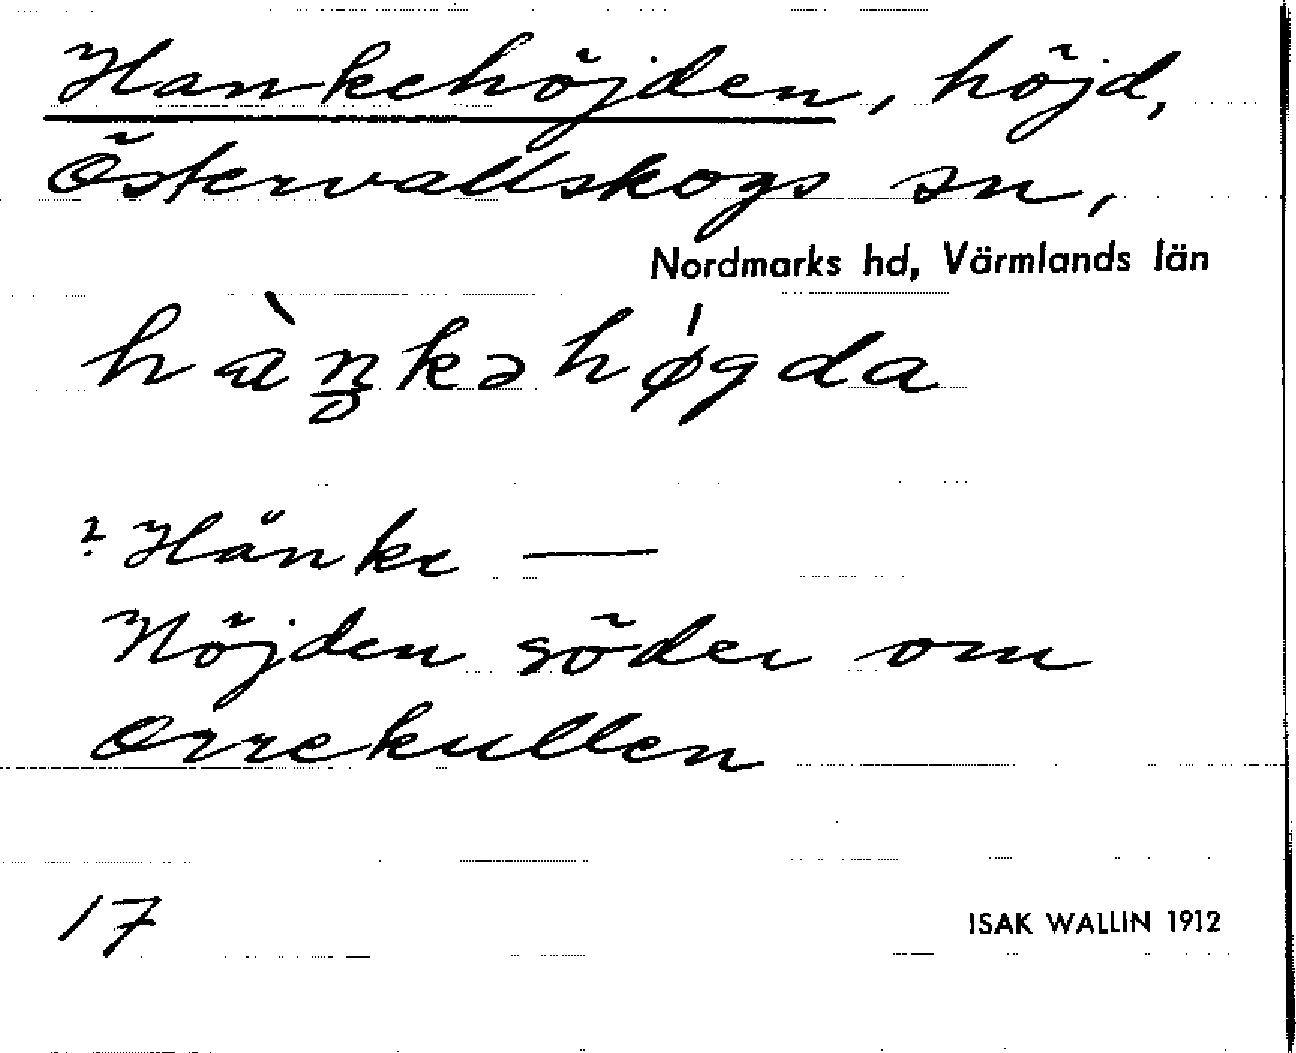 Hankehöjden, höjd,
Östervallskogs sn,
Nordmarks hd, Värmlands län
hàŋkəhǿgda
? Hänke —
Höjden söder om
Orrekullen
17
ISAK WALLIN 1912